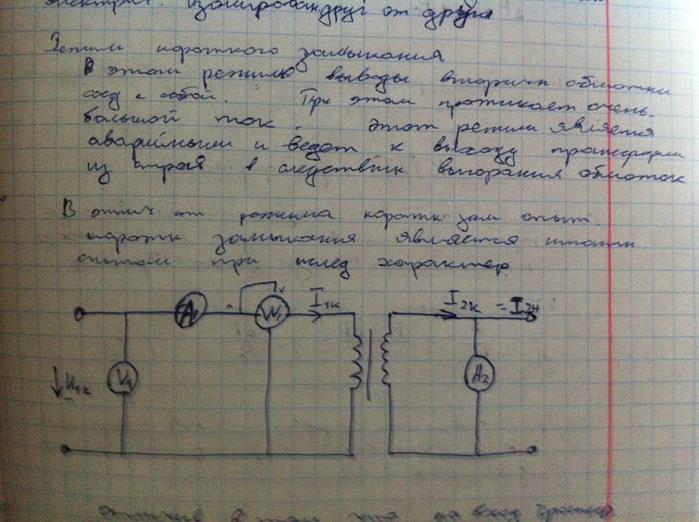 электрич. изолирован друг от друга
Режим короткого замыкания
В этом режиме выводы вторичн обмотки
соед с собой. При этом протикает очень
большой ток. Этот режим является
аварийным и ведет к выходу трансформ
из строя в следствии выгорания обмоток
В отлич от режима коротк зам опыт
коротк замыкания является штатн
опытом при послед характер
A1 W1 I1к I2к = I2н
U1к V1 A2
в том что на вход